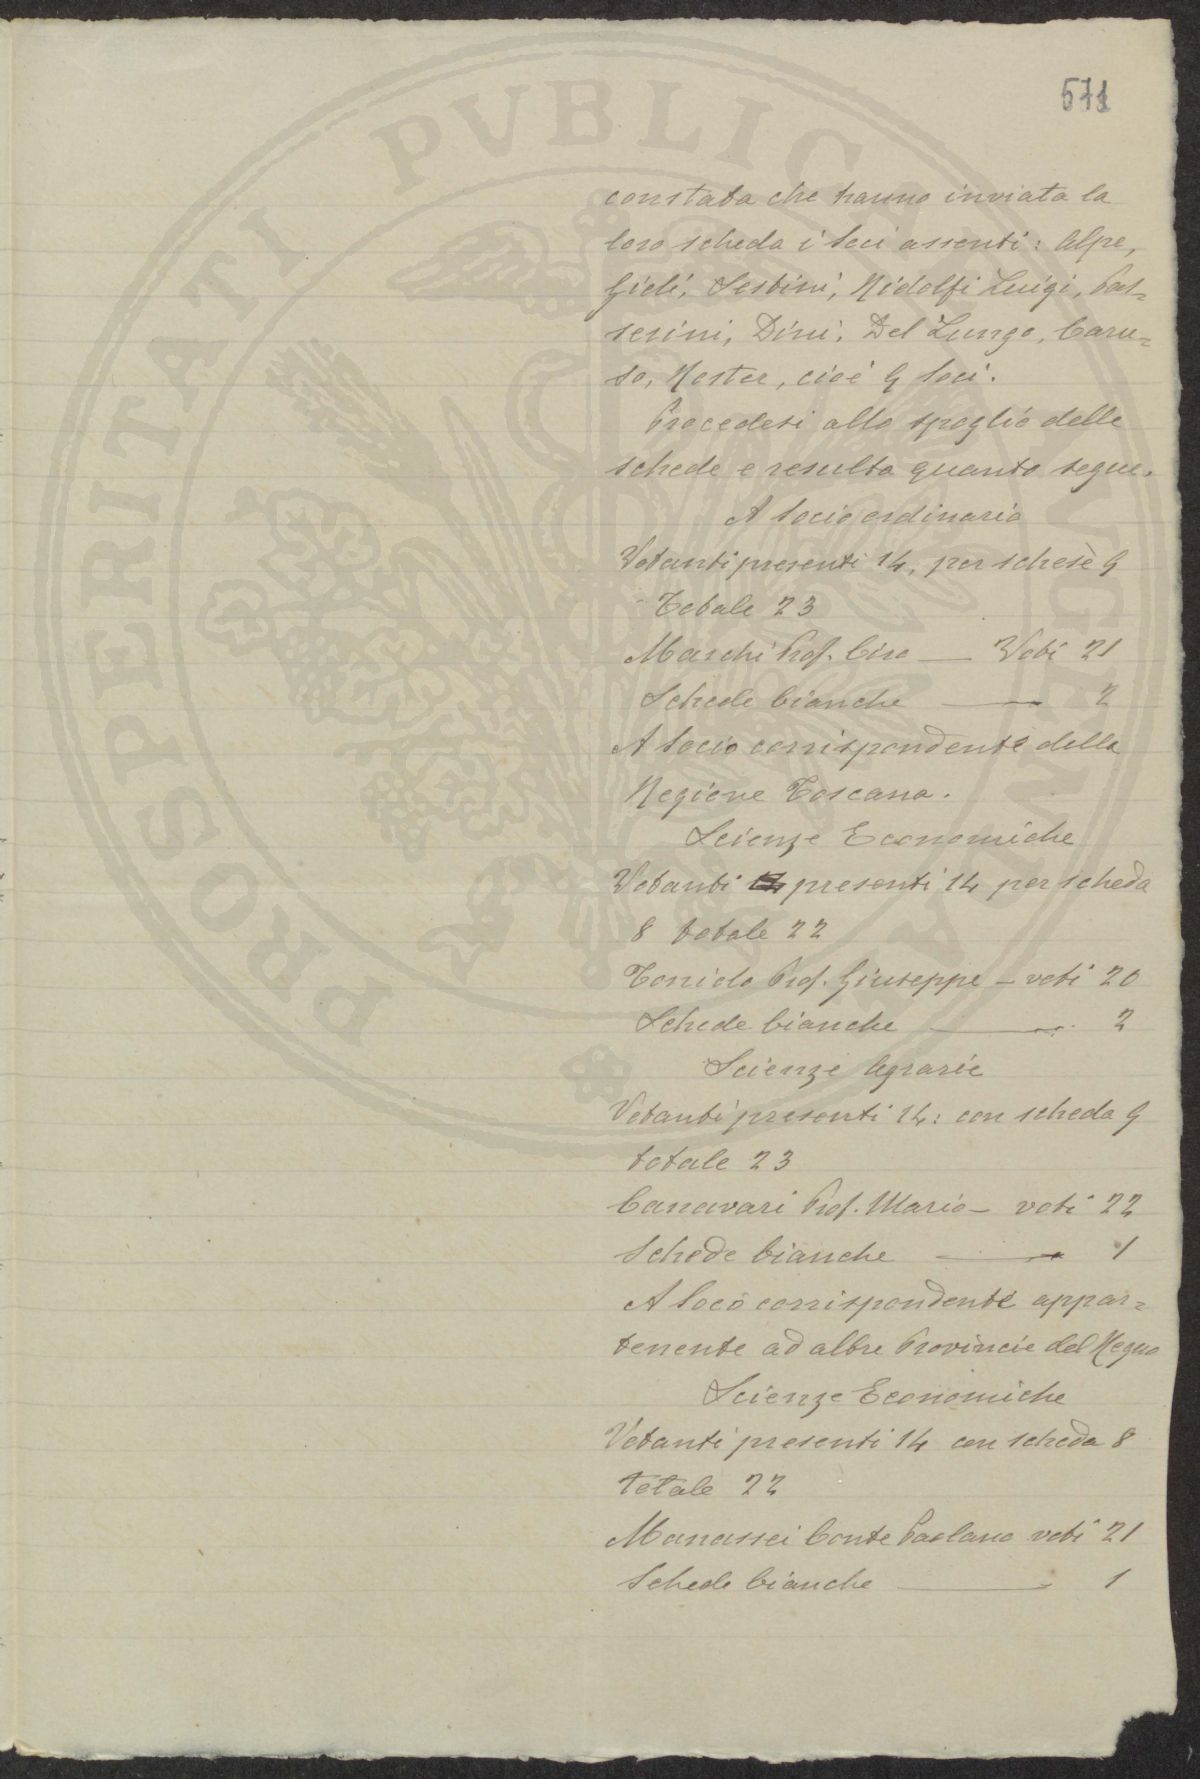 PROSPERITATI PVBLICAE AVGENDAE
constata che hanno inviata la
loro scheda i Soci assenti: Alpe,
Gidi, Sestini, Ridolfi Luigi, Pas=
serini, Dini, Del Lungo, Caru=
so, Roster, cioè 9 soci.
Procedesi allo spoglio delle
schede e resulta quanto segue.
A Socio ordinario
Votanti presenti 14, per schese 9
Totale 23
Marchi Prof. Ciro — Voti 21
Schede bianche — 2
A Socio corrispondente della
Regione Toscana.
Scienze Economiche
Votanti presenti 14 per scheda
8 totale 22
Prof. Giuseppe — voti 20
Schede bianche — 2
Scienze Agrarie
Votanti presenti 14: con scheda 9
totale 23
Canavari Prof. Mario — voti 22
Schede bianche — 1
A Socio corrispondente appar=
tenente ad altre Provincie del Regno
Scienze Economiche
Votanti presenti 14 con scheda 8
totale 22
Manassei Conte Paolano voti 21
Schede bianche — 1